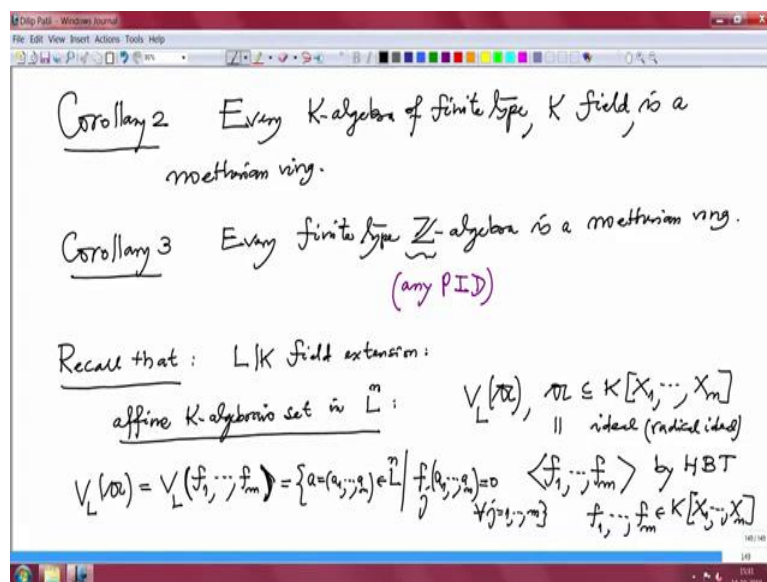 Dilip Patil - Windows Journal
File Edit View Insert Actions Tools Help
Corollary 2 Every K-algebra of finite type, K field, is a
noetherian ring.
Corollary 3 Every finite type ℤ-algebra is a noetherian ring.
(any PID)
Recall that : L|K field extension :
affine K-algebraic set in L^n : V_L(𝔞), 𝔞 ⊆ K[X_1, ..., X_n]
|| ideal (radical ideal)
V_L(𝔞) = V_L(f_1, ..., f_m) = {a=(a_1, ..., a_n) ∈ L^n | f_j(a_1, ..., a_n)=0 ∀ j=1, ..., m} ⟨f_1, ..., f_m⟩ by HBT
f_1, ..., f_m ∈ K[X_1, ..., X_n]
148/148
149
15:01